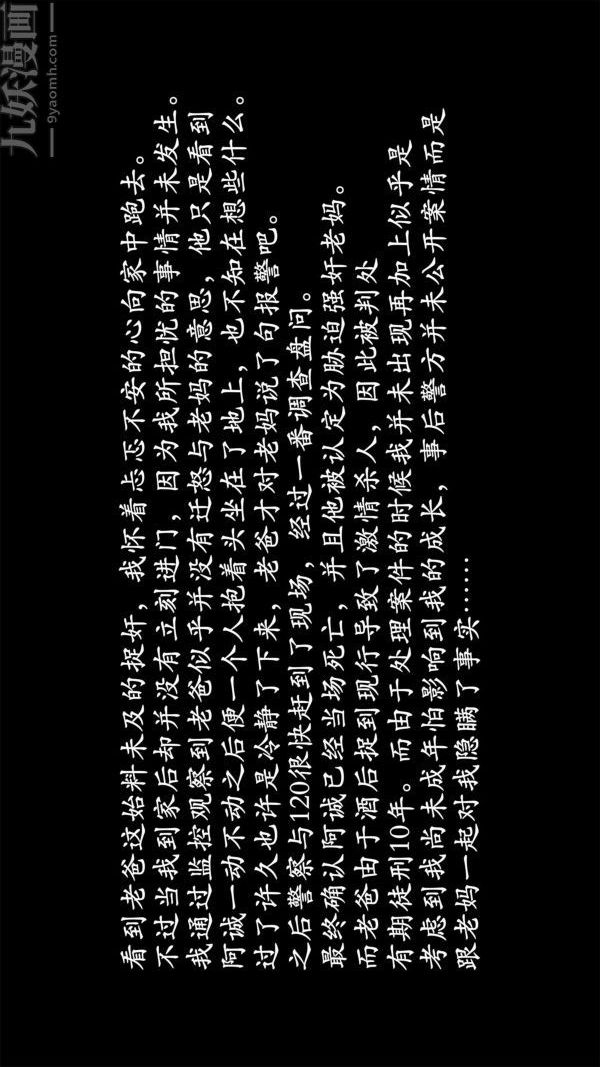 九妖漫画
9yaomh.com
看到老爸这始料未及的捉奸，我怀着忐忑不安的心向家中跑去。
不过当我到家后却并没有立刻进门，因为我所担忧的事情并未发生。
我通过监控观察到老爸似乎并没有迁怒与老妈的意思，他只是看到
阿诚一动不动之后便一个人抱着头坐在了地上，也不知在想些什么。
过了许久也许是冷静了下来，老爸才对老妈说了句报警吧。
之后警察与120很快赶到了现场，经过一番调查盘问。
最终确认阿诚已经当场死亡，并且他被认定为胁迫强奸老妈。
而老爸由于酒后捉到现行导致了激情杀人，因此被判处
有期徒刑10年。而由于处理案件的时候我并未出现再加上似乎是
考虑到我尚未成年怕影响到我的成长，事后警方并未公开案情而是
跟老妈一起对我隐瞒了事实……